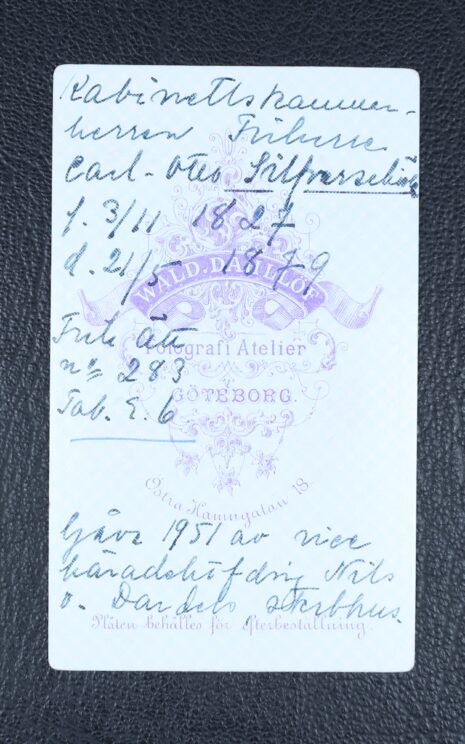 Kabinettskammer-
herren Friherre
Carl-Otto Silfverschiöld
f. 3/11 1827
d. 21/5 1879
WALD. DAHLLÖF
Frih ätt
nº 283
Fotografi Atelier
GÖTEBORG.
Tab. E. 6
Östra Hamngatan 18.
Gåva 1951 av vice
häradshöfding Nils
v. Dardels sterbhus.
Plåten behålles för efterbeställning.